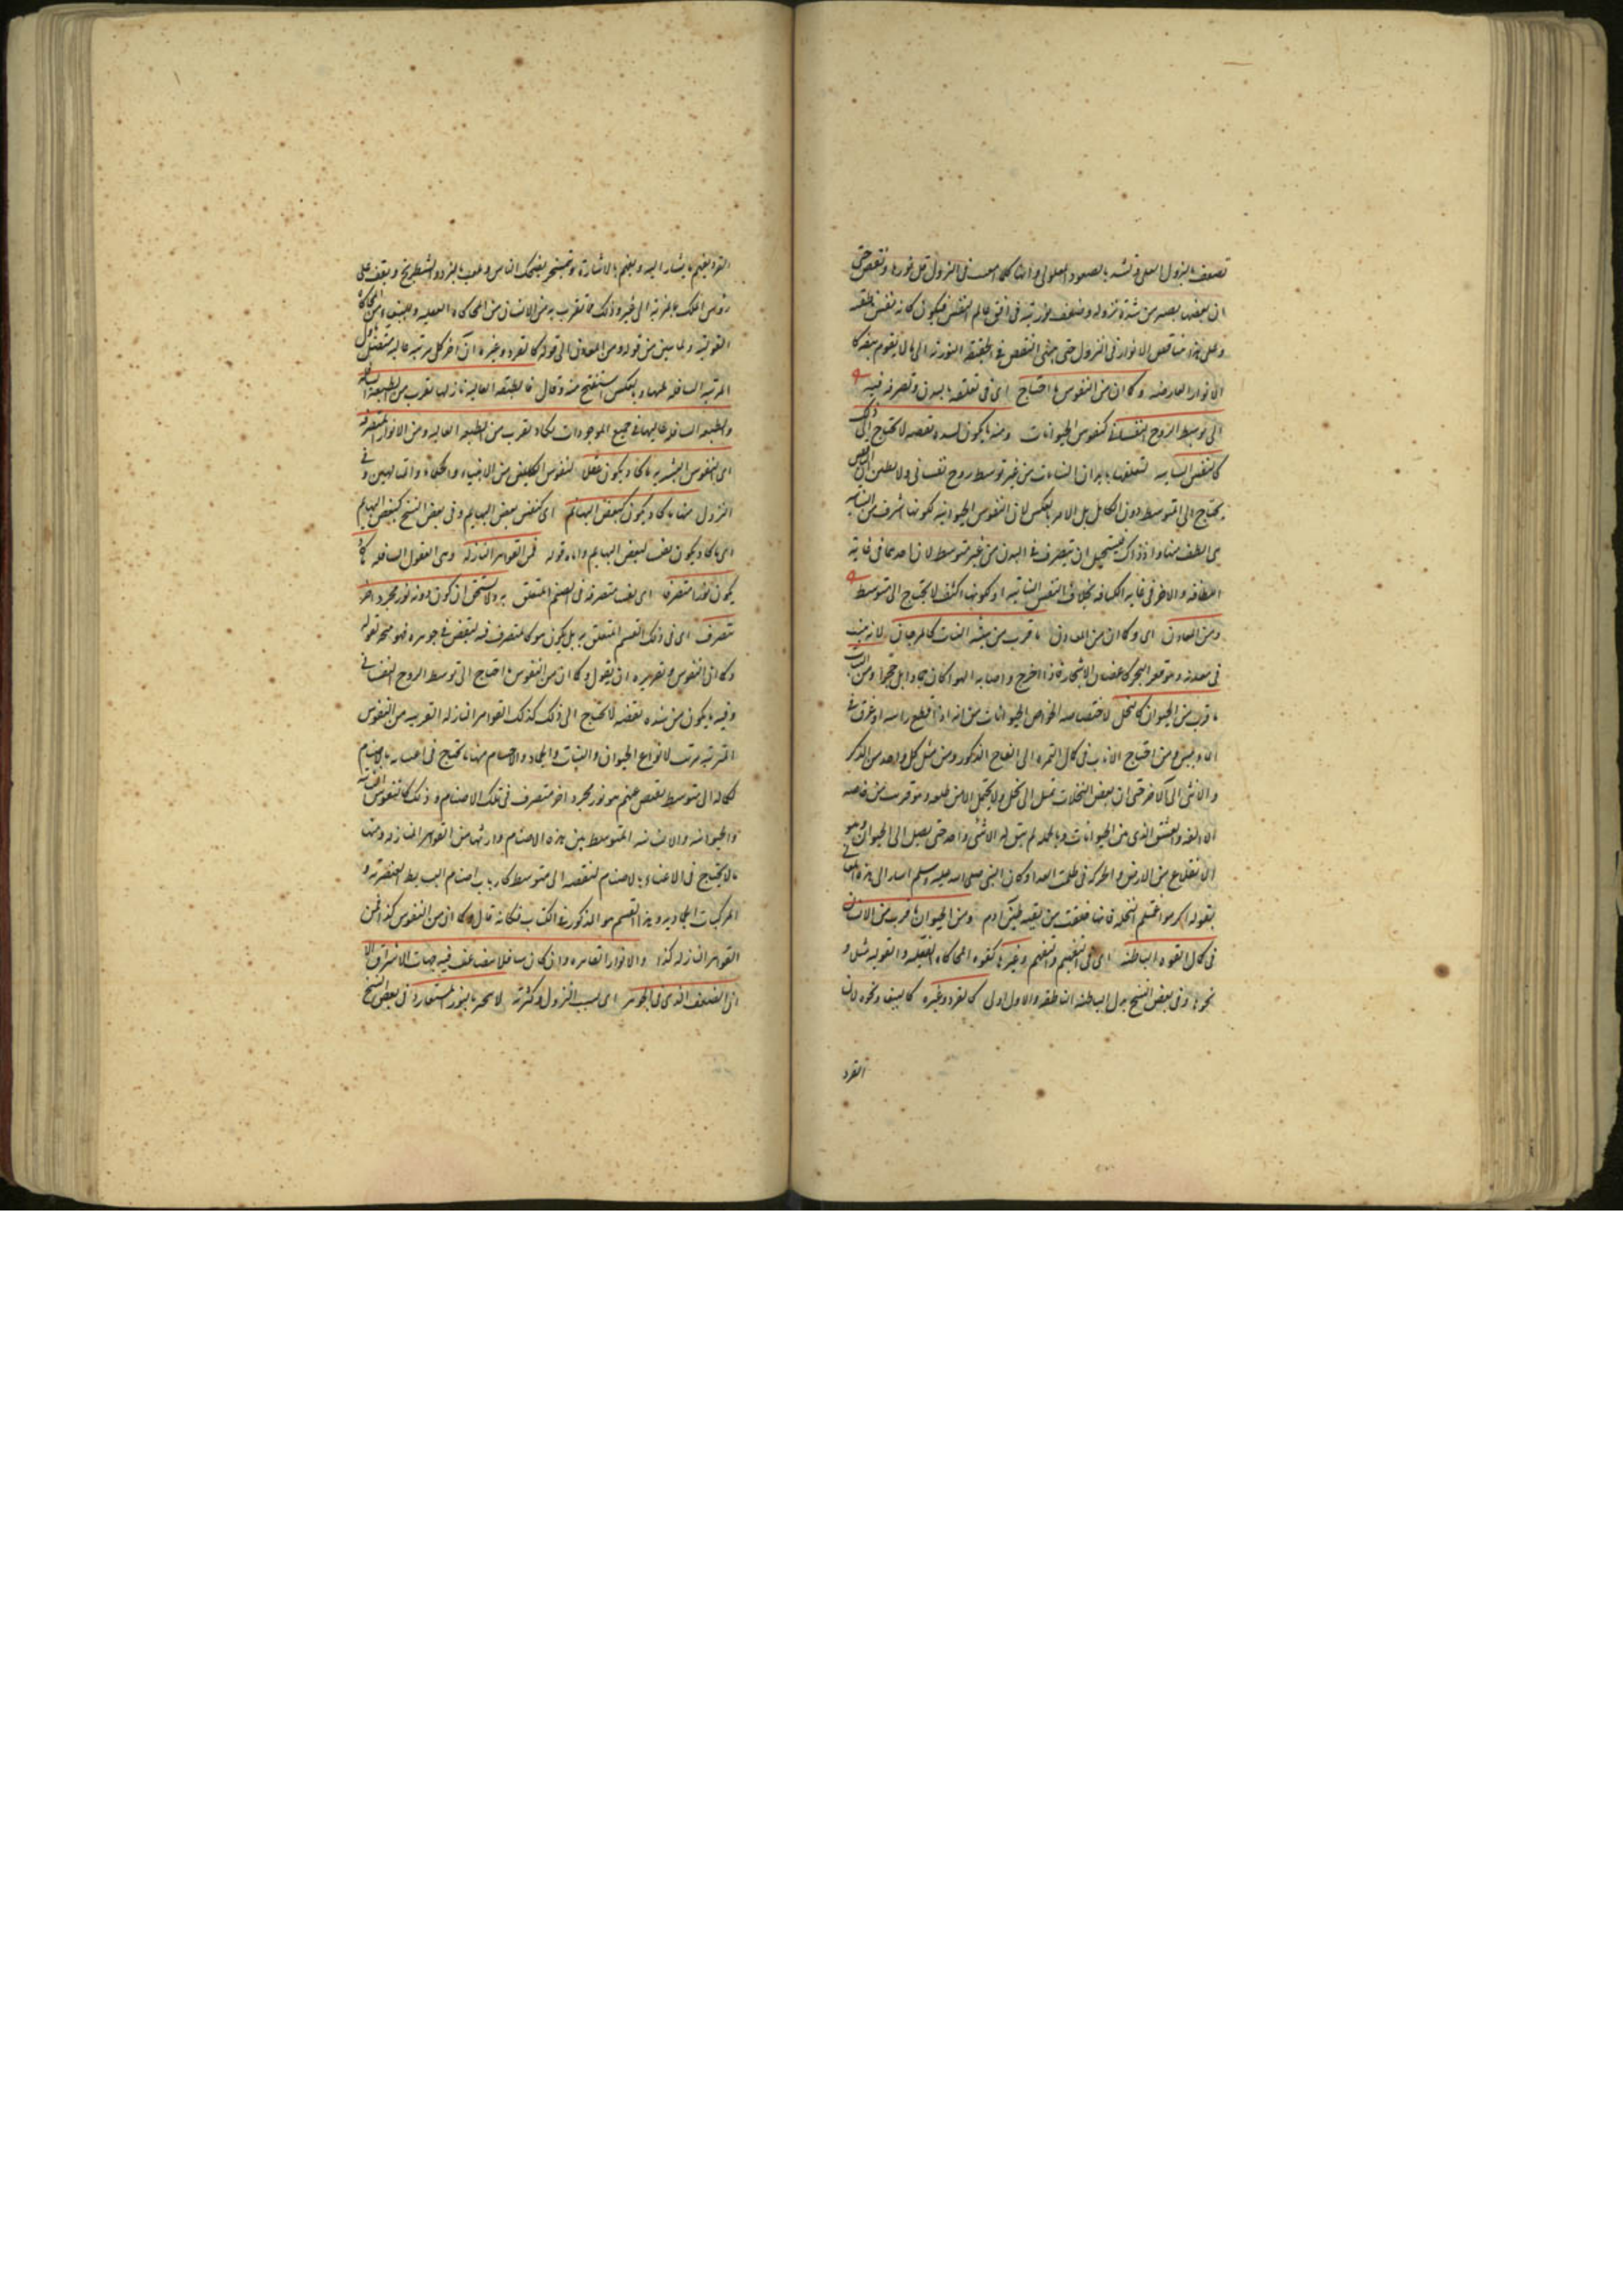 تضعف بالنزول العلى وتشتد بالصعود المعلولى وانها كلما امعنت فى النزول قل نورها ونقص حتى
ان بعضها يصير من شدة نزوله وضعف نوريته فى افق عالم النفس فيكون كانه نفس ناطقة
وعلى هذا يتناقص الانوار فى النزول حتى ينتهى النقص فى الحقيقة النورية الى ما لا يقوم بنفسه كا
الانوار العارضة وكما ان من النفوس ما احتاج اى فى تعلقه بالبدن وتصرفه فيه
الى توسط الروح النفسانى كنفوس الحيوانات ومنه ما يكون لشدة نقصه لا يحتاج الى ذلك
كالنفس النباتية لتعلقها بابدان النباتات من غير توسط روح نفسانى ولا يظن ان الناقص
يحتاج الى المتوسط دون الكامل بل الامر بالعكس لان النفوس الحيوانية لكونها اشرف من النباتية
هى الطف منها واذ ذاك فيستحيل ان تتصرف فى البدن من غير متوسط لان احدهما فى غاية
اللطافة والاخر فى غاية الكثافة بخلاف النفس النباتية اذ لكونها اكثف لا يحتاج الى متوسط
ومن المعادن اى وكما ان من المعادن ما قرب من هيئة النبات كالمرجان لانه ينبت
فى معدنه وهو قعر البحر كاغصان الاشجار فاذا اخرج واصابه الهواء كان جمادا بل حجرا ومن النبات
ما قرب من الحيوان كالنخل لاختصاصه بخواص الحيوانات من انه اذا قطع راسه او غرق فى
الماء يبس ومن احتياج الاناث فى كمال الثمرة الى القاح الذكور ومن ميل كل واحد من الذكر
والانثى الى الاخر حتى ان بعض النخلات تميل الى نخل ولا تحمل الا من طلعه وهو قريب من خاصة
الالفة والعشق الذى من الحيوانات وبالجملة لم يبق له الا شئ واحد حتى يصل الى الحيوان وهو
الانقلاع من الارض والحركة فى طلب الغذاء وكان النبى صلى الله عليه وسلم اشار الى هذا المعنى
بقوله اكرموا عمتكم النخلة فانها خلقت من بقية طين آدم ومن الحيوان ما قرب من الانسان
فى كمال القوة الباطنة اى فى التفهيم والتفهم وغيرها كقوة المحاكاة الفعلية والقولية مثلا و
نحوها وفى بعض النسخ بدل الباطنة الناطقة والاول اولى كالقرد وغيره كالببغا ونحوه لان
القرد
القرد يفهم ما يشار اليه ويفهم بالاشارة ويتمسخر يضحك الناس ويلعب بالنرد والشطرنج ويقف على
رؤس الملك بالمذبة الى غير ذلك مما يقرب به من الانسان من المحاكاة الفعلية والببغاء من المحاكاة
القولية ولما بين من قوله ومن المعادن الى قوله كالقرد وغيره ان آخر كل مرتبة عالية متصل باول
المرتبة السافلة منها وبالعكس استفتح منه وقال فالطبقة العالية نازلها يقرب من الطبقة السافلة
والطبقة السافلة عاليها فى جميع الموجودات يكاد يقرب من الطبقة العالية ومن الانوار المتصرفة
اى النفوس البشرية ما كاد يكون عقلا كنفوس الكاملين من الانبياء والحكماء والمتالهين و فى
النزول منها ما كاد يكون كبعض البهائم اى كنفس بعض البهايم وفى بعض النسخ كبعض البهايم
اى ما كاد يكون نفسا لبعض البهايم واما قوله فمن القواهر النازلة وهى العقول السافلة ما كاد
يكون نورا متصرفا اى نفسا متصرفة فى الصنم المتعلق به ولا يستحق ان يكون دونه نور مجرد اخر
متصرف اى فى ذلك الصنم المتعلق به بل يكون هو كالمتصرف فيه لنقص فى جوهره فهو متجه لقوله
وكما ان النفوس وتقريره ان يقول وكما ان من النفوس ما احتاج الى توسط الروح النفسانى
وفيه ما يكون من شدة نقصه لا يحتاج الى ذلك كذلك القواهر النازلة القريبة من النفوس
المترتبة مرتب لانواع الحيوان والنبات والجماد والاجسام منها ما يحتاج فى اعتنائه بالاصنام
لكماله الى متوسط ينقص عنه هو نور مجرد اخر متصرف فى تلك الاصنام وذلك كالنفوس النباتية
والحيوانية والانسانية المتوسط بين هذه الاصنام واربابها من القواهر النازلة ومنها
ما لا يحتاج فى الاعتناء بالاصنام لنقصه الى متوسط كارباب اصنام البسايط العنصرية و
المركبات الجمادية وهذا القسم هو المذكور فى الكتاب فكانه قال وكما ان من النفوس كذا فمن
القواهر النازلة كذا والانوار القاهرة وان كان سافلا يتضاعف فيه جهات الاشراق الا
ان الضعف الذى فى الجوهر اى بسبب النزول وكثرته لا ينجبر بالنور المستعار وفى بعض النسخ